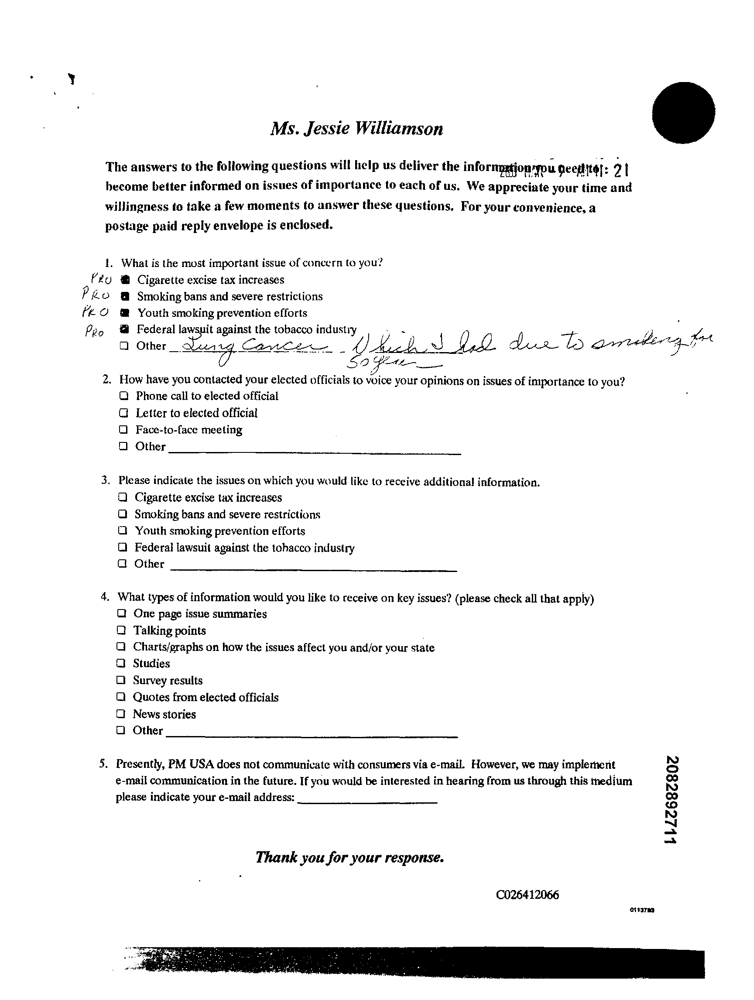 Ms. Jessie Williamson
The answers to the following questions will help us deliver the information you need to
become better informed on issues of importance to each of us. We appreciate your time and
willingness to take a few moments to answer these questions. For your convenience, a
postage paid reply envelope is enclosed.
1. What is the most important issue of concern to you?
PRO ■ Cigarette excise tax increases
PRO ■ Smoking bans and severe restrictions
PRO ■ Youth smoking prevention efforts
PRO ■ Federal lawsuit against the tobacco industry
❑ Other Lung Cancer - Which I had due to smoking for
50 years
2. How have you contacted your elected officials to voice your opinions on issues of importance to you?
❑ Phone call to elected official
❑ Letter to elected official
❑ Face-to-face meeting
❑ Other
3. Please indicate the issues on which you would like to receive additional information.
❑ Cigarette excise tax increases
❑ Smoking bans and severe restrictions
❑ Youth smoking prevention efforts
❑ Federal lawsuit against the tobacco industry
❑ Other
4. What types of information would you like to receive on key issues? (please check all that apply)
❑ One page issue summaries
❑ Talking points
❑ Charts/graphs on how the issues affect you and/or your state
❑ Studies
❑ Survey results
❑ Quotes from elected officials
❑ News stories
❑ Other
5. Presently, PM USA does not communicate with consumers via e-mail. However, we may implement
e-mail communication in the future. If you would be interested in hearing from us through this medium
please indicate your e-mail address:
Thank you for your response.
C026412066
0113783
2082892711